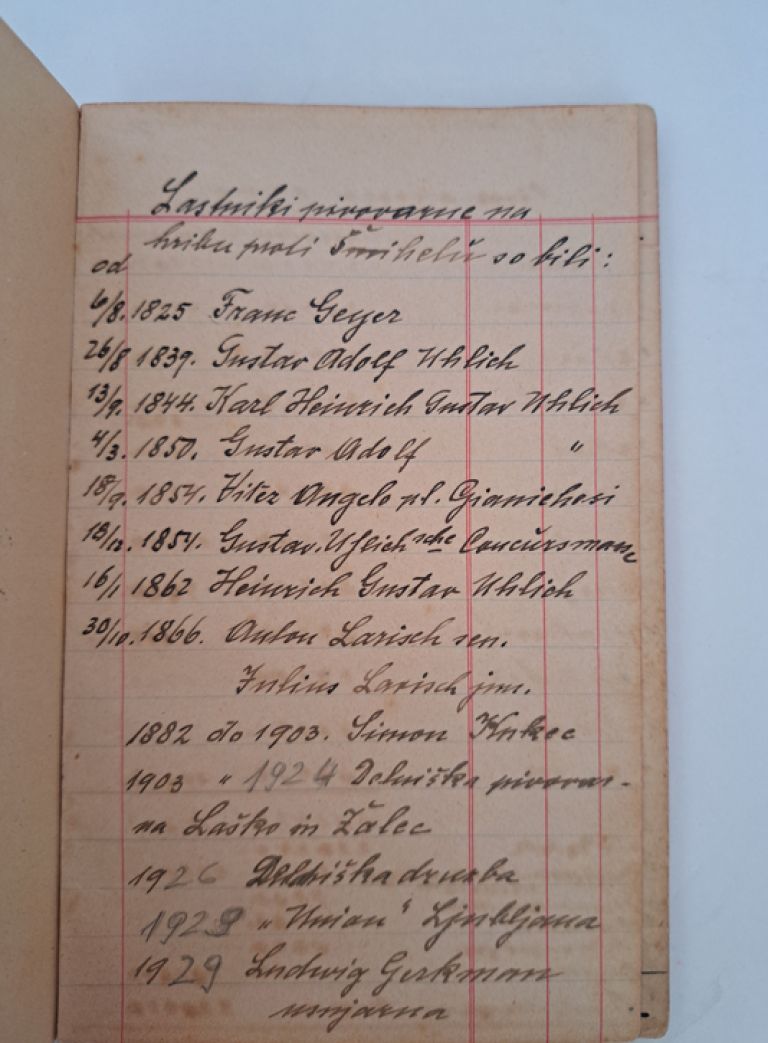 Lastniki pivovarne na
hribu proti Šmihelu so bili:
od
6/8. 1825 Franc Geyer
26/8 1839. Gustav Adolf Uhlich
13/9. 1844. Karl Heinrich Gustav Uhlich
4/3. 1850. Gustav Adolf "
18/9. 1854. Vitez Angelo pl.
13/12. 1854. Gustav Uhlich sche
16/1 1862 Heinrich Gustav Uhlich
30/10. 1866. Anton Larisch sen.
Julius Larisch jun.
1882 do 1903. Simon Kukec
1903 " 1924 Delniška pivovar-
na Laško in Žalec
1926 Delniška družba
1928 „Union" Ljubljana
1929 Ludwig Gerkman
usnjarna